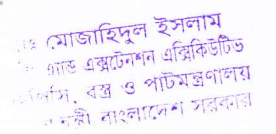 মোজাহিদুল ইসলাম
এ্যান্ড এক্সটেনশন এক্সিকিউটিভ
বস্ত্র ও পাটমন্ত্রণালয়
বাংলাদেশ সরকার